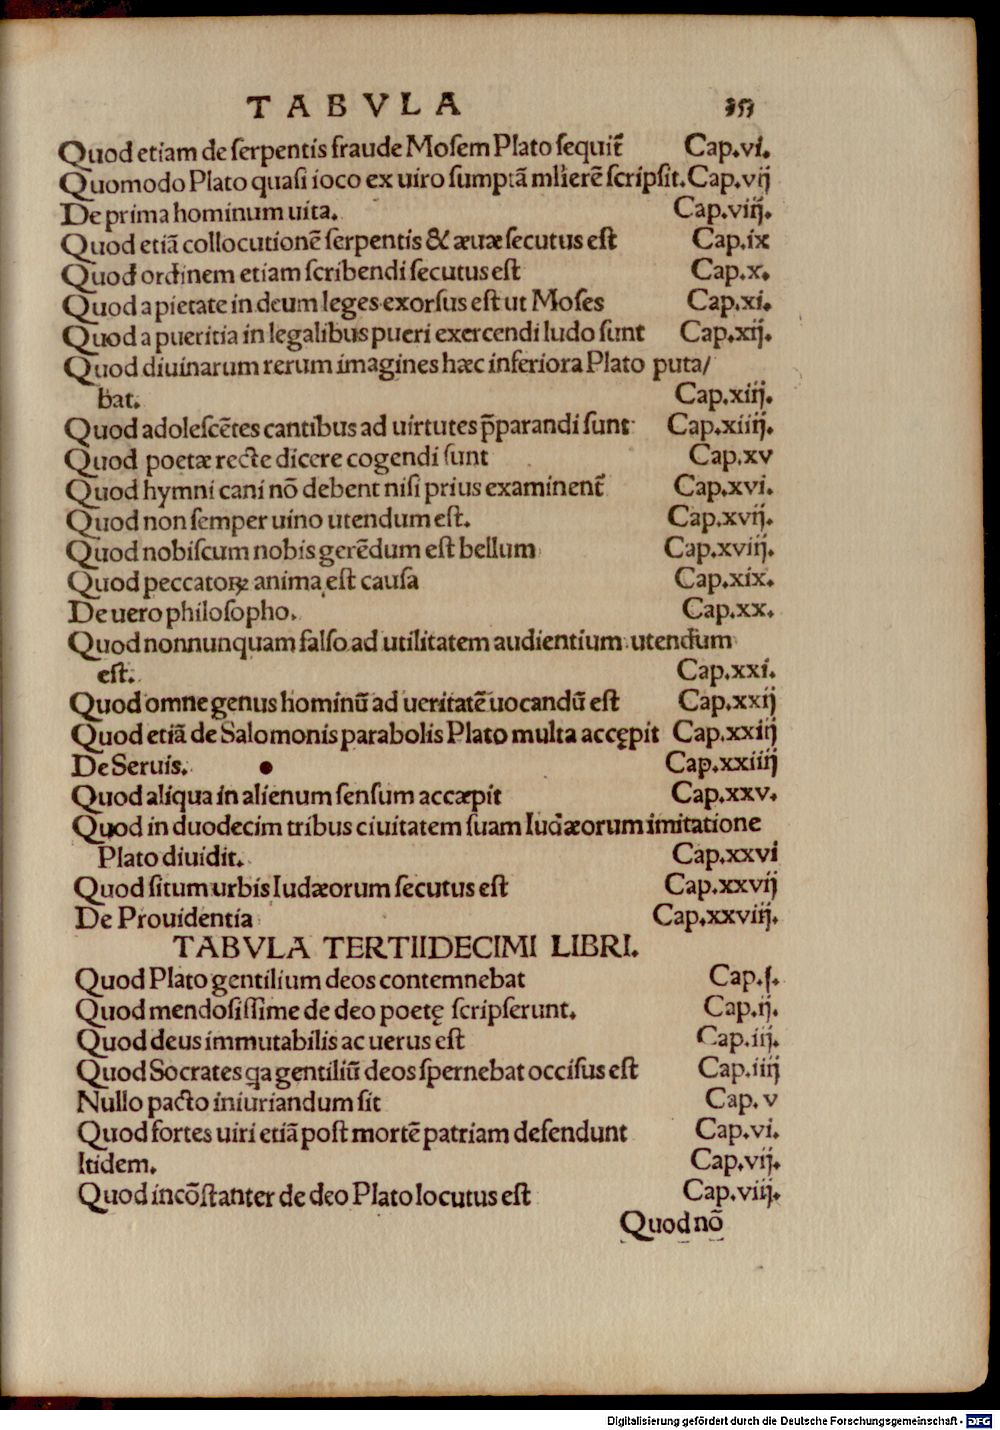 TABVLA
Quod etiam de ſerpentis fraude Moſem Plato ſequit̃ Cap.vi.
Quomodo Plato quaſi ioco ex uiro ſumptã mlierẽ ſcripſit. Cap.vij
De prima hominum uita. Cap.viij.
Quod etiã collocutionẽ ſerpentis & æuæ ſecutus eſt Cap.ix
Quod ordinem etiam ſcribendi ſecutus eſt Cap.x.
Quod a pietate in deum leges exorſus eſt ut Moſes Cap.xi.
Quod a pueritia in legalibus pueri exercendi ludo ſunt Cap.xij.
Quod diuinarum rerum imagines hæc inferiora Plato puta/
bat. Cap.xiij.
Quod adoleſcẽtes cantibus ad uirtutes p̃parandi ſunt Cap.xiiij.
Quod poetæ recte dicere cogendi ſunt Cap.xv
Quod hymni cani nõ debent niſi prius examinent̃ Cap.xvi.
Quod non ſemper uino utendum eſt. Cap.xvij.
Quod nobiſcum nobis gerẽdum eſt bellum Cap.xviij.
Quod peccatoꝝ anima eſt cauſa Cap.xix.
De uero philoſopho. Cap.xx.
Quod nonnunquam falſo ad utilitatem audientium utendum
eſt. Cap.xxi.
Quod omne genus hominũ ad ueritatẽ uocandũ eſt Cap.xxij
Quod etiã de Salomonis parabolis Plato multa accępit Cap.xxiij
De Seruis. Cap.xxiiij
Quod aliqua in alienum ſenſum accæpit Cap.xxv.
Quod in duodecim tribus ciuitatem ſuam Iudæorum imitatione
Plato diuidit. Cap.xxvi
Quod ſitum urbis Iudæorum ſecutus eſt Cap.xxvij
De Prouidentia Cap.xxviij.
TABVLA TERTIIDECIMI LIBRI.
Quod Plato gentilium deos contemnebat Cap.ſ.
Quod mendoſiſſime de deo poetę ſcripſerunt. Cap.ij.
Quod deus immutabilis ac uerus eſt Cap.iij.
Quod Socrates ꝗa gentiliũ deos ſpernebat occiſus eſt Cap.iiij
Nullo pacto iniuriandum ſit Cap.v
Quod fortes uiri etiã poſt mortẽ patriam defendunt Cap.vi.
Itidem. Cap.vij.
Quod incõſtanter de deo Plato locutus eſt Cap.viij.
Quod nõ
Digitalisierung gefördert durch die Deutsche Forschungsgemeinschaft - DFG